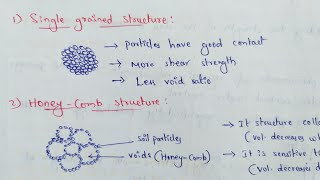 1) Single grained structure :
→ particles have good contact
→ More shear strength
→ Less void ratio
2) Honey-Comb structure :
soil particles
voids (Honey-Comb)
→ It structure colla
(vol. decreases wh
→ It is sensitive to
(vol. decreases